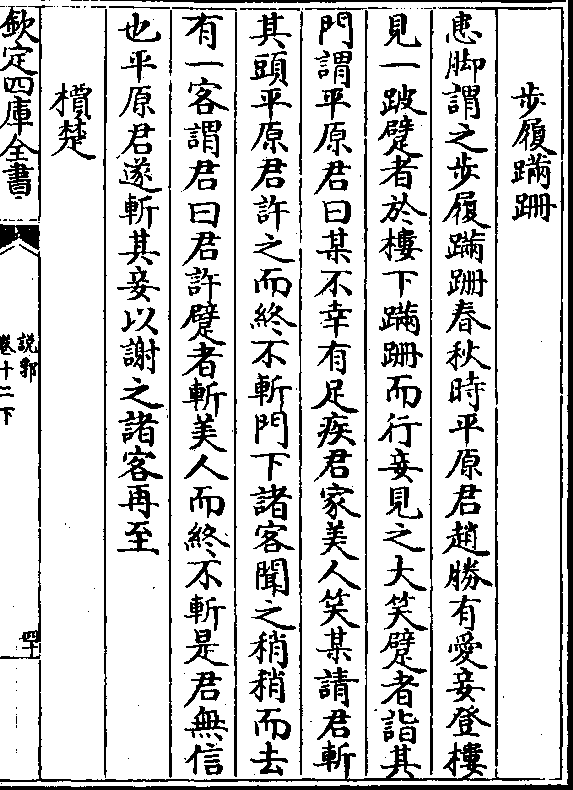 步履蹣跚
患脚謂之步履蹣跚春秋時平原君趙勝有愛妾登樓
見一跛躄者於樓下蹣跚而行妾見之大笑躄者詣其
門謂平原君曰某不幸有足疾君家美人笑某請君斬
其頭平原君許之而終不斬門下諸客聞之稍稍而去
有一客謂君曰君許躄者斬美人而終不斬是君無信
也平原君遂斬其妾以謝之諸客再至
檟楚
欽定四庫全書
說郛
卷十二下
四十